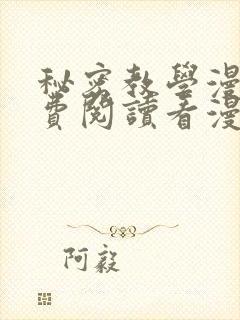 秘密教學漫
費閱讀看漫
阿毅